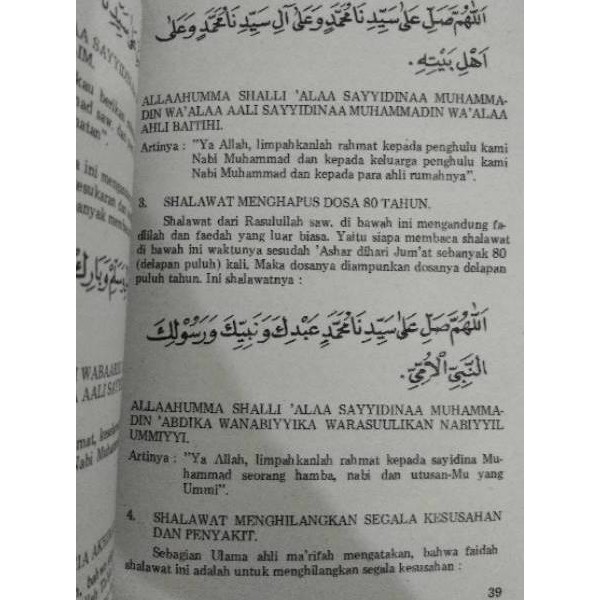 اَللّٰهُمَّ صَلِّ عَلٰى سَيِّدِنَا مُحَمَّدٍ وَعَلٰى اٰلِ سَيِّدِنَا مُحَمَّدٍ وَعَلٰى
اَهْلِ بَيْتِهِ.
ALLAAHUMMA SHALLI 'ALAA SAYYIDINAA MUHAMMA-
DIN WA'ALAA AALI SAYYIDINAA MUHAMMADIN WA'ALAA
AHLI BAITIHI.
Artinya : "Ya Allah, limpahkanlah rahmat kepada penghulu kami
Nabi Muhammad dan kepada keluarga penghulu kami
Nabi Muhammad dan kepada para ahli rumahnya".
3. SHALAWAT MENGHAPUS DOSA 80 TAHUN.
Shalawat dari Rasulullah saw. di bawah ini mengandung fa-
dlilah dan faedah yang luar biasa. Yaitu siapa membaca shalawat
di bawah ini waktunya sesudah 'Ashar dihari Jum'at sebanyak 80
(delapan puluh) kali, Maka dosanya diampunkan dosanya delapan
puluh tahun. Ini shalawatnya :
اَللّٰهُمَّ صَلِّ عَلٰى سَيِّدِنَا مُحَمَّدٍ عَبْدِكَ وَنَبِيِّكَ وَرَسُوْلِكَ
النَّبِيِّ الْاُمِّيِّ.
ALLAAHUMMA SHALLI 'ALAA SAYYIDINAA MUHAMMA-
DIN 'ABDIKA WANABIYYIKA WARASUULIKAN NABIYYIL
UMMIYYI.
Artinya : "Ya Allah, limpahkanlah rahmat kepada sayidina Mu-
hammad seorang hamba, nabi dan utusan-Mu yang
Ummi".
4. SHALAWAT MENGHILANGKAN SEGALA KESUSAHAN
DAN PENYAKIT.
Sebagian Ulama ahli ma'rifah mengatakan, bahwa faidah
shalawat ini adalah untuk menghilangkan segala kesusahan :
39